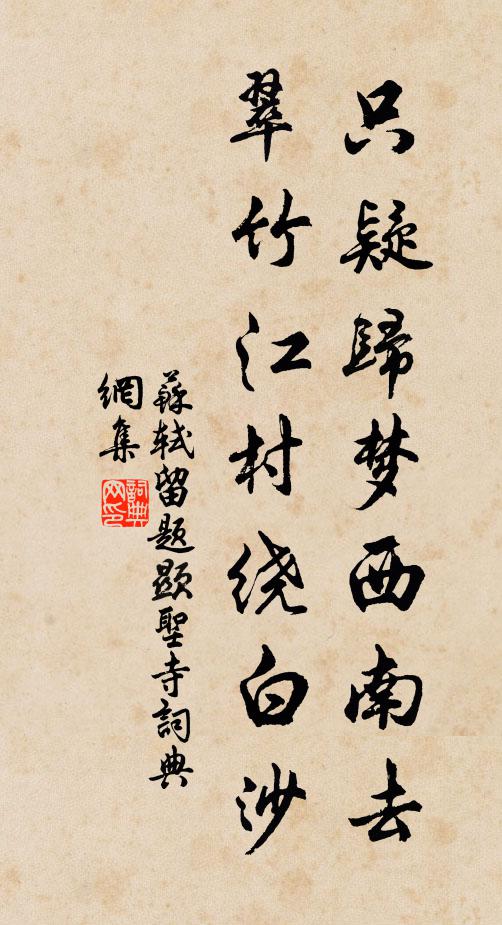 只疑歸梦西南去
翠竹江村绕白沙
蘇轼留题顯聖寺詞典
網集
詞典
网印